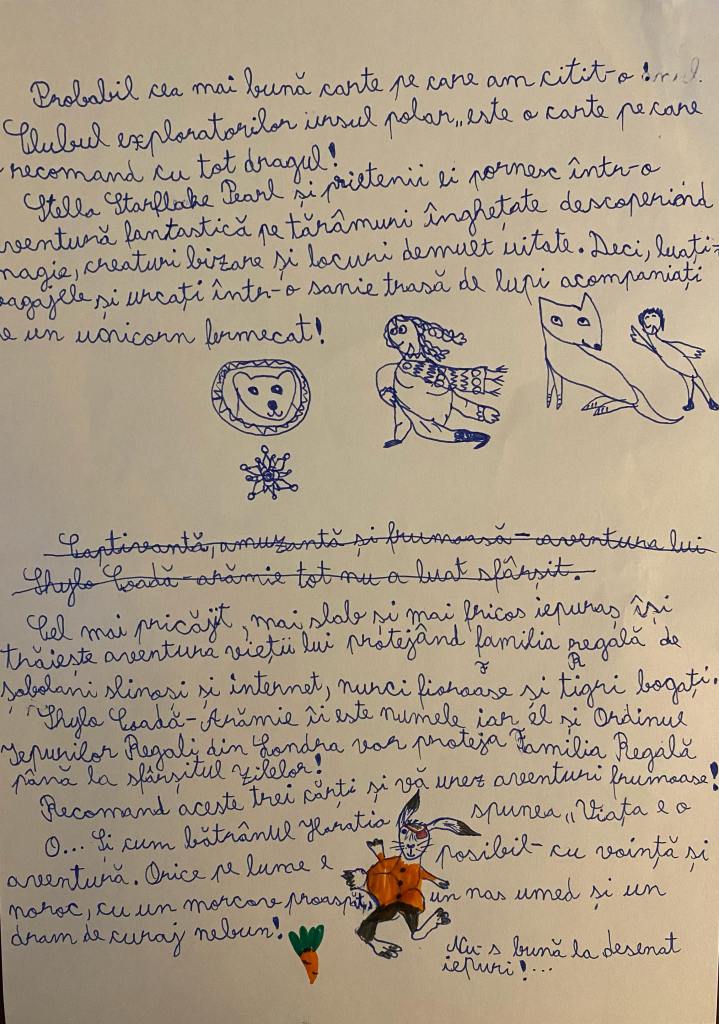 Probabil cea mai bună carte pe care am citit-o!
Clubul exploratorilor ursul polar„ este o carte pe care
recomand cu tot dragul!
Stella Starflake Pearl și prietenii ei pornesc într-o
aventură fantastică pe tărâmuri înghețate descoperind
magie, creaturi bizare și locuri demult uitate. Deci, luați-
bagajele și urcați într-o sanie trasă de lupi acompaniați
de un unicorn fermecat!
Captivantă, amuzantă și frumoasă - aventura lui
Shylo Coadă-arămie tot nu a luat sfârșit.
Cel mai pricăjit, mai slab și mai fricos iepuraș își
trăiește aventura vieții lui protejând familia regală de
F R
șobolani slinoși și internet, nurci fioroase și tigri bogați.
Shylo Coadă-Arămie îi este numele iar el și Ordinul
Iepurilor Regali din Londra vor proteja Familia Regală
până la sfârșitul zilelor!
Recomand aceste trei cărți și vă urez aventuri frumoase!
O... Și cum bătrânul Horatio spunea „Viața e o
aventură. Orice pe lume e posibil- cu voință și
noroc, cu un morcov proaspăt, un nas umed și un
dram de curaj nebun!
Nu-s bună la desenat
iepuri!...